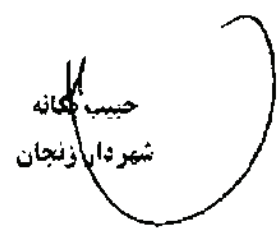 حبیب یگانه
شهردار زنجان